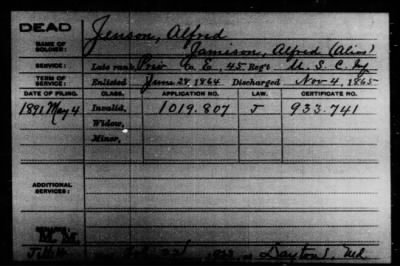 DEAD
NAME OF SOLDIER: Jenson, Alfred
Jamison, Alfred (Alias)
SERVICE: Late rank, Priv Co. E, 45 Reg't U. S. C. Inf
TERM OF SERVICE: Enlisted June 28 1864 Discharged Nov 4, 1865
DATE OF FILING. CLASS. APPLICATION NO. LAW. CERTIFICATE NO.
1891 May 4 Invalid, 1019.807 J 933.741
Widow,
Minor,
ADDITIONAL SERVICES:
Dayton, Md